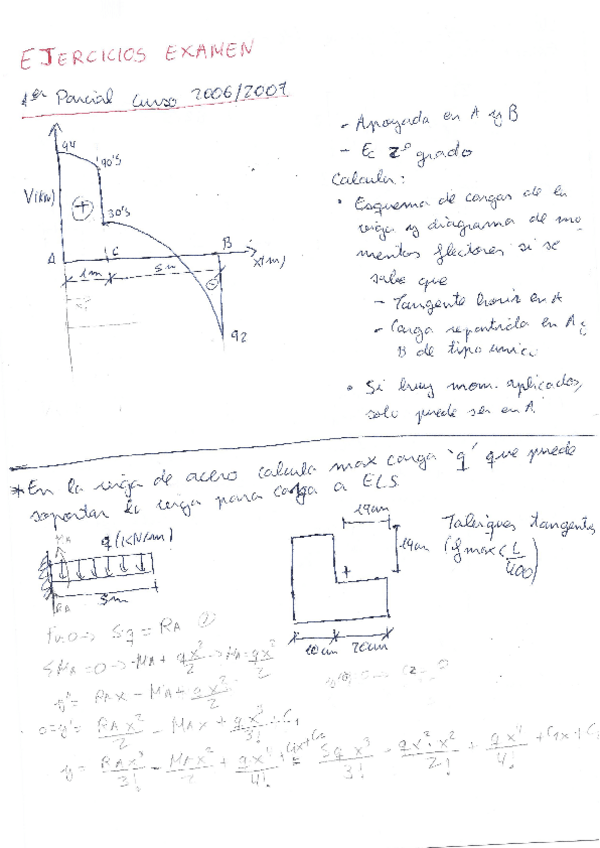 EJERCICIOS EXAMEN
1er Parcial curso 2006/2007
94
90'5
V(kN)
+
30'5
A
C
B
x(m)
1m
5m
92
- Apoyada en A y B
- Ec 2º grado
Calcular:
• Esquema de cargas de la
viga y diagrama de mo
mentos flectores si se
sabe que
- Tangente horiz en A
- Carga repartida en A y
B de tipo unico
• Si hay mom. aplicados,
solo puede ser en A
* En la viga de acero calcula max carga 'q' que puede
soportar la viga para carga a ELS.
q(KN/m)
5m
19cm
19cm
+
10cm
20cm
Tabiques tangentes
(fmax < L/400)
Fv=0 → 5q = RA
ΣMA=0 → -MA + qx²/2 → MA = qx²/2
y'' = RAx - MA + qx²/2
0=y' = RAx²/2 - MAx + qx³/3! + C1
y = RAx³/3! - MAx²/2 + qx⁴/4! + C1x + C2 = 5q x³/3! - qx² x²/2! + qx⁴/4! + C1x +